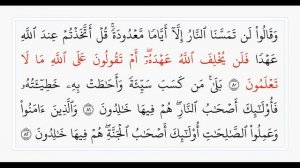 وَقَالُوا۟ لَن تَمَسَّنَا ٱلنَّارُ إِلَّآ أَيَّامًا مَّعْدُودَةً ۚ قُلْ أَتَّخَذْتُمْ عِندَ ٱللَّهِ
عَهْدًا فَلَن يُخْلِفَ ٱللَّهُ عَهْدَهُۥٓ ۖ أَمْ تَقُولُونَ عَلَى ٱللَّهِ مَا لَا
تَعْلَمُونَ ٨٠ بَلَىٰ مَن كَسَبَ سَيِّئَةً وَأَحَٰطَتْ بِهِۦ خَطِيٓـَٔتُهُۥ
فَأُو۟لَٰٓئِكَ أَصْحَٰبُ ٱلنَّارِ ۖ هُمْ فِيهَا خَٰلِدُونَ ٨١ وَٱلَّذِينَ ءَامَنُوا۟
وَعَمِلُوا۟ ٱلصَّٰلِحَٰتِ أُو۟لَٰٓئِكَ أَصْحَٰبُ ٱلْجَنَّةِ ۖ هُمْ فِيهَا خَٰلِدُونَ ٨٢